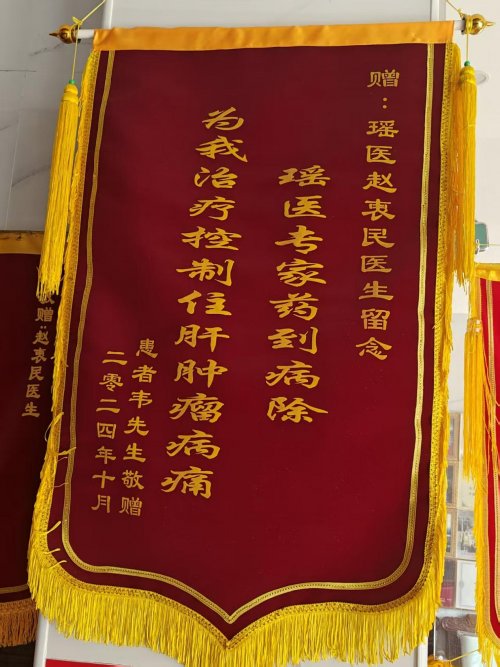 赠：瑶医赵衷民医生留念
瑶医专家药到病除
为我治疗控制住肝肿瘤病痛
患者韦先生敬赠
二零二四年十月
敬赠：赵衷民医生